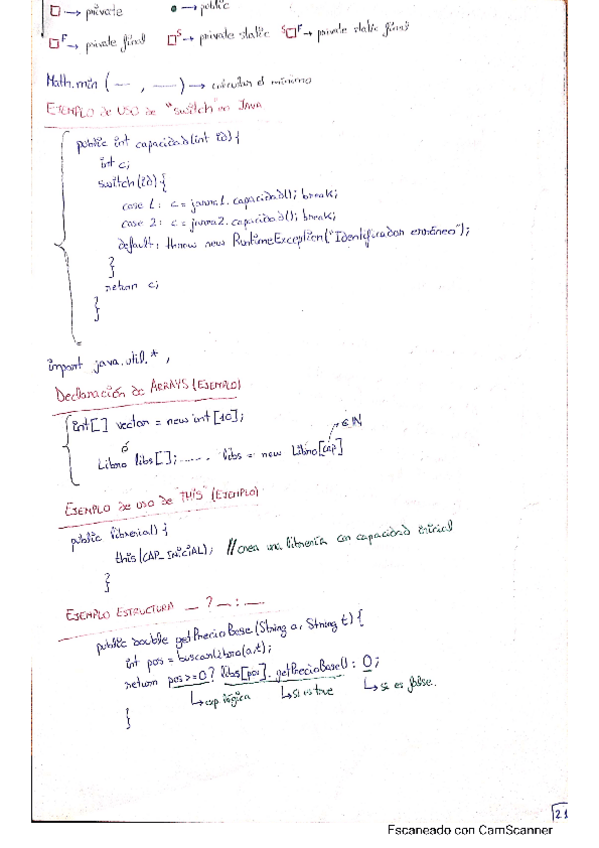 □ → private ● → public
□F → private final □S → private static S□F → private static final
Math.min ( — , — ) → calcular el mínimo
EJEMPLO de USO de "switch" en JAVA
public int capacidad(int id) {
int c;
switch(id) {
case 1: c = jarra1.capacidad(); break;
case 2: c = jarra2.capacidad(); break;
default: throw new RuntimeException("Identificador erróneo");
}
return c;
}
import java.util.* ;
Declaración de ARRAYS (EJEMPLO)
int[] vector = new int [10];
ó
Libro libs[]; ...... libs = new Libro[cap] → ∈ IN
EJEMPLO de uso de "THIS" (EJEMPLO)
public libreria() {
this(CAP_INICIAL); // crea una librería con capacidad inicial
}
EJEMPLO ESTRUCTURA — ? — : —
public double getPrecioBase(String a, String t) {
int pos = buscarLibro(a,t);
return pos>=0 ? libs[pos].getPrecioBase() : 0;
↳ exp lógica ↳ si es true ↳ si es false.
}
21
Escaneado con CamScanner